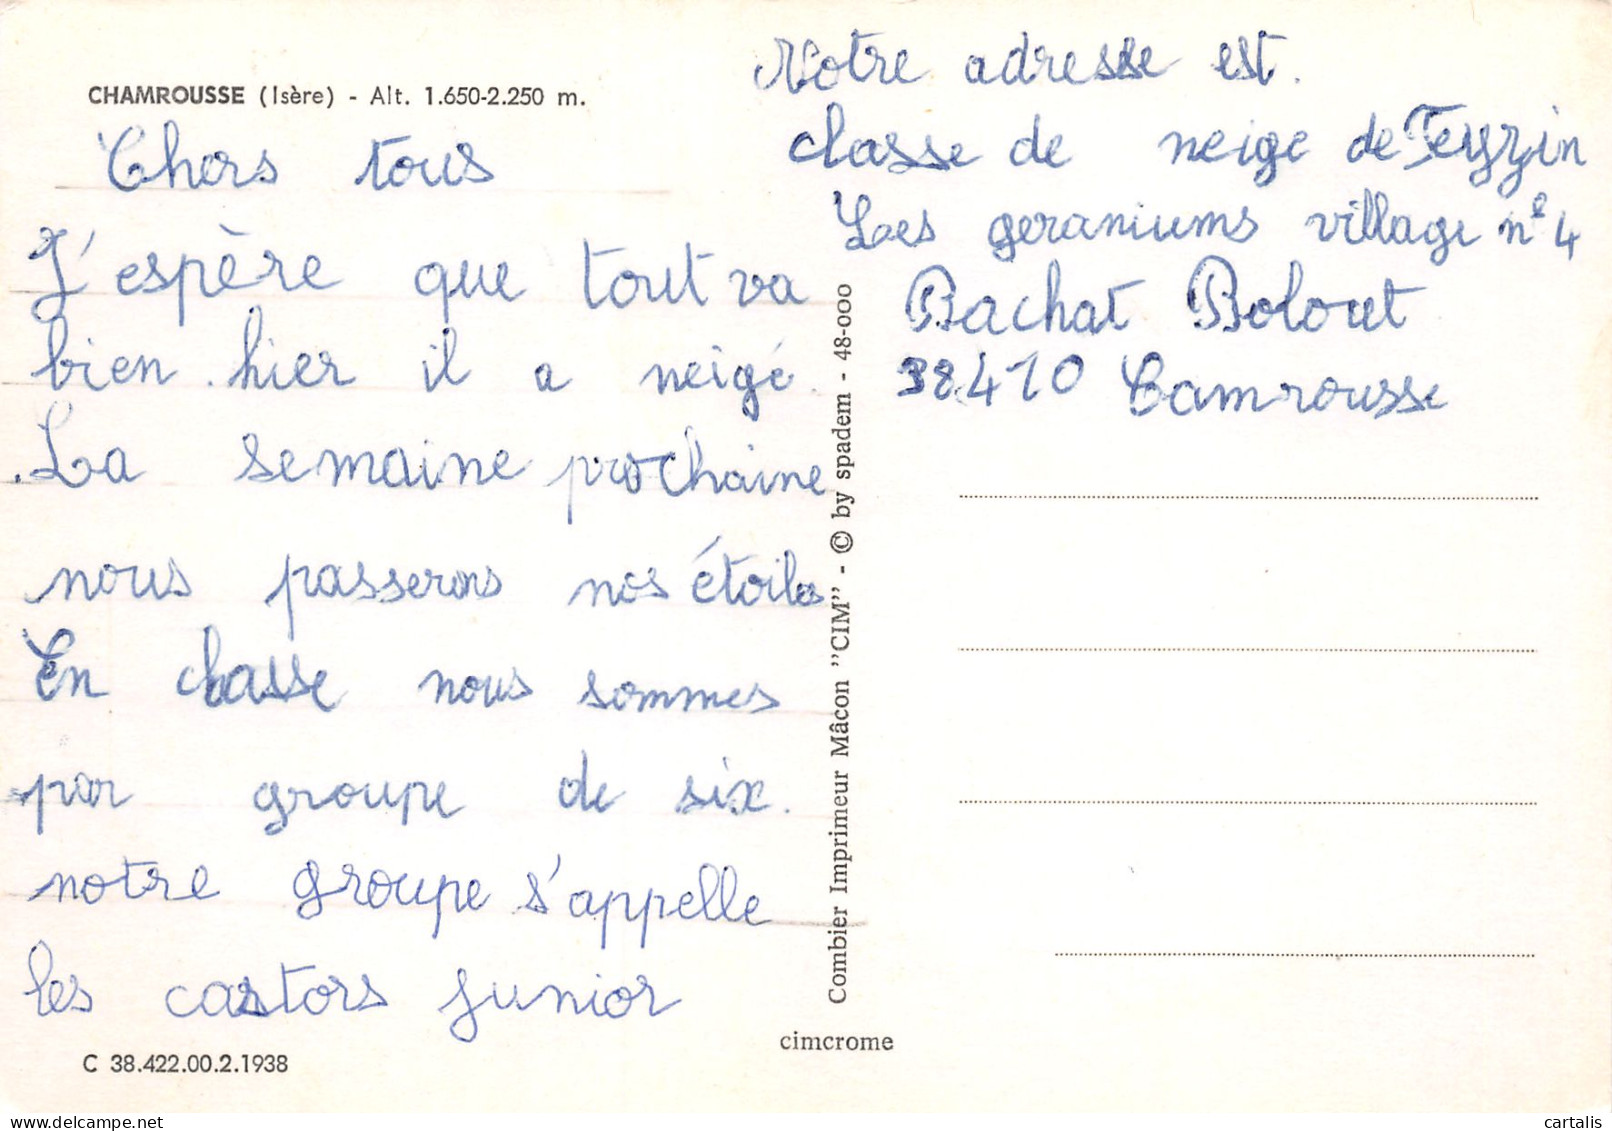 CHAMROUSSE (Isère) - Alt. 1.650-2.250 m.
Chers tous
J'espère que tout va
bien . hier il a neigé.
La semaine prochaine
nous passerons nos étoiles
En classe nous sommes
par groupe de six.
notre groupe s'appelle
les castors junior
C 38.422.00.2.1938
Combier Imprimeur Mâcon "CIM" - © by spadem - 48-000
cimcrome
Notre adresse est.
classe de neige de Feyzin
Les geraniums village n° 4
Bachat Bolouet
38410 Camrousse
cartalis